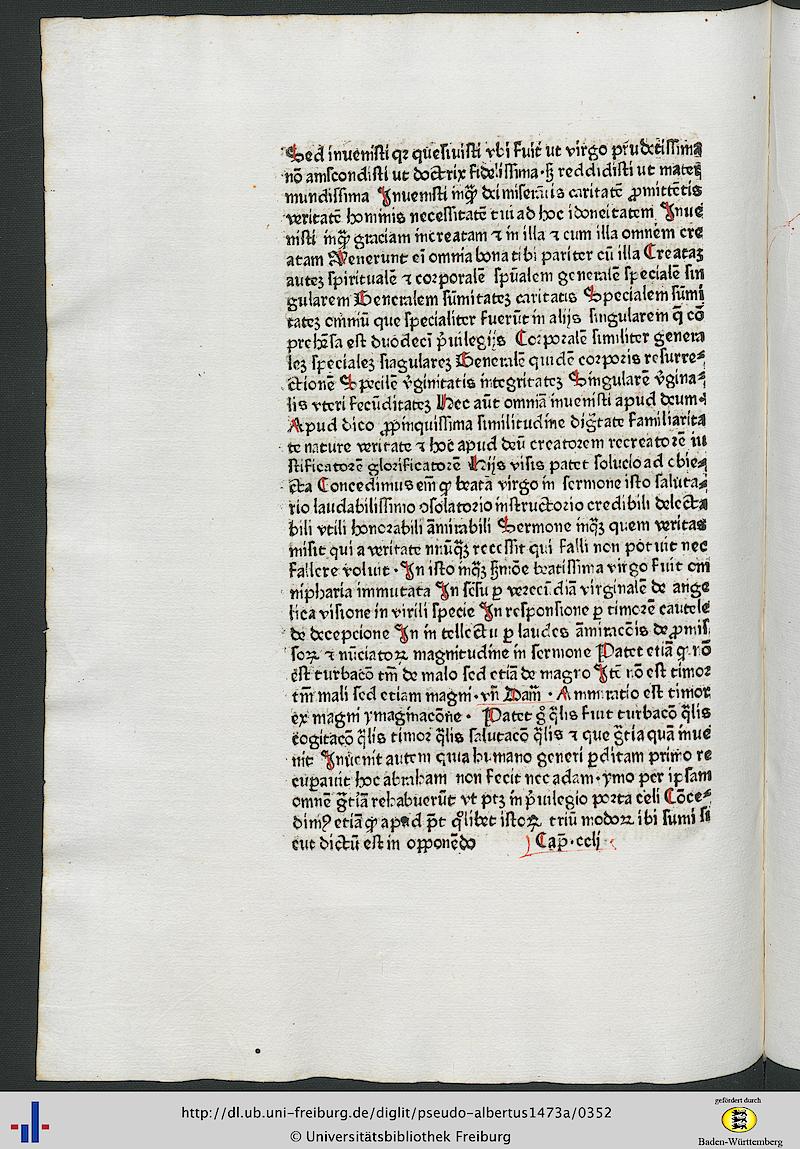 Sed inuenisti qꝛ quesiuisti vbi fuit ut virgo prudētissima
nō amscondisti ut doctrix fidelissima · sꝫ reddidisti ut mater
mundissima Inuenisti inqͣꝫ dei miserātis caritatē ꝓmittētis
veritatē hominis necessitatē tui ad hoc idoneitatem Inue
nisti inqͣꝫ graciam increatam ⁊ in illa ⁊ cum illa omnem cre
atam Venerunt em̄ omnia bona tibi pariter cū illa Creataꝫ
auteꝫ spiritualē ⁊ corporalē spūalem generalē specialē sin
gularem Generalem sūmitateꝫ caritatis Specialem sūmi
tateꝫ omniū que specialiter fuerūt in alijs singularem q̄ cō
prehēsa est duodecī pͥuilegijs Corporalē similiter genera
leꝫ specialeꝫ singulareꝫ Generalē quidē corporis resurre⸗
ctionē Specilē ꝟginitatis integritateꝫ Singularē ꝟgina⸗
lis vteri fecūditateꝫ Hec aūt omnia inuenisti apud deum ·
Apud dico ꝓpinquissima similitudine digtate familiarita
te nature veritate ⁊ hoc apud deū creatorem recreatorē iu
stificatorē glorificatorē Hijs visis patet solucio ad obie⸗
cta Concedimus em̄ ꝙ beata virgo in sermone isto saluta⸗
rio laudabilissimo ↄsolatorio instructorio credibili delecta
bili vtili honorabili āmirabili Sermone inqͣꝫ quem veritas
misit qui a veritate nūqͣꝫ recessit qui falli non potuit nec
fallere voluit · In isto inqͣꝫ sermōe beatissima virgo fuit om
nipharia immutata In sēsu ꝑ verecūdiā virginalē de ange
lica visione in virili specie In responsione ꝑ timorē cautele
de decepcione In in tellectu ꝑ laudes āmiracōis de ꝓmis
soꝝ ⁊ nūciatoꝝ magnitudine in sermone Patet etiā ꝙ nō
est turbacō tm̄ de malo sed etiā de magno Itē nō est timor
tm̄ mali sed etiam magni · vn̄ Dam̄ · Ammiratio est timor
ex magni ymaginacōne · Patet gͦ qͣlis fuit turbacō qͣlis
cogitacō qͣlis timor qͣlis salutacō qͣlis ⁊ que gͣtia quā inue
nit Inuenit autem quia humano generi ꝑditam primo re
cuꝑauit hoc abraham non fecit nec adam · ymo per ipsam
omnē gͣtiā rehabuerūt vt ptꝫ in pͥuilegio porta celi Cōce⸗
dimꝰ etiā ꝙ apud p̄t qͦlibet istoꝝ triū modoꝝ ibi sumi si
cut dictū est in opponēdo Cap̄ · cclj ·
http://dl.ub.uni-freiburg.de/diglit/pseudo-albertus1473a/0352
© Universitätsbibliothek Freiburg
gefördert durch
Baden-Württemberg